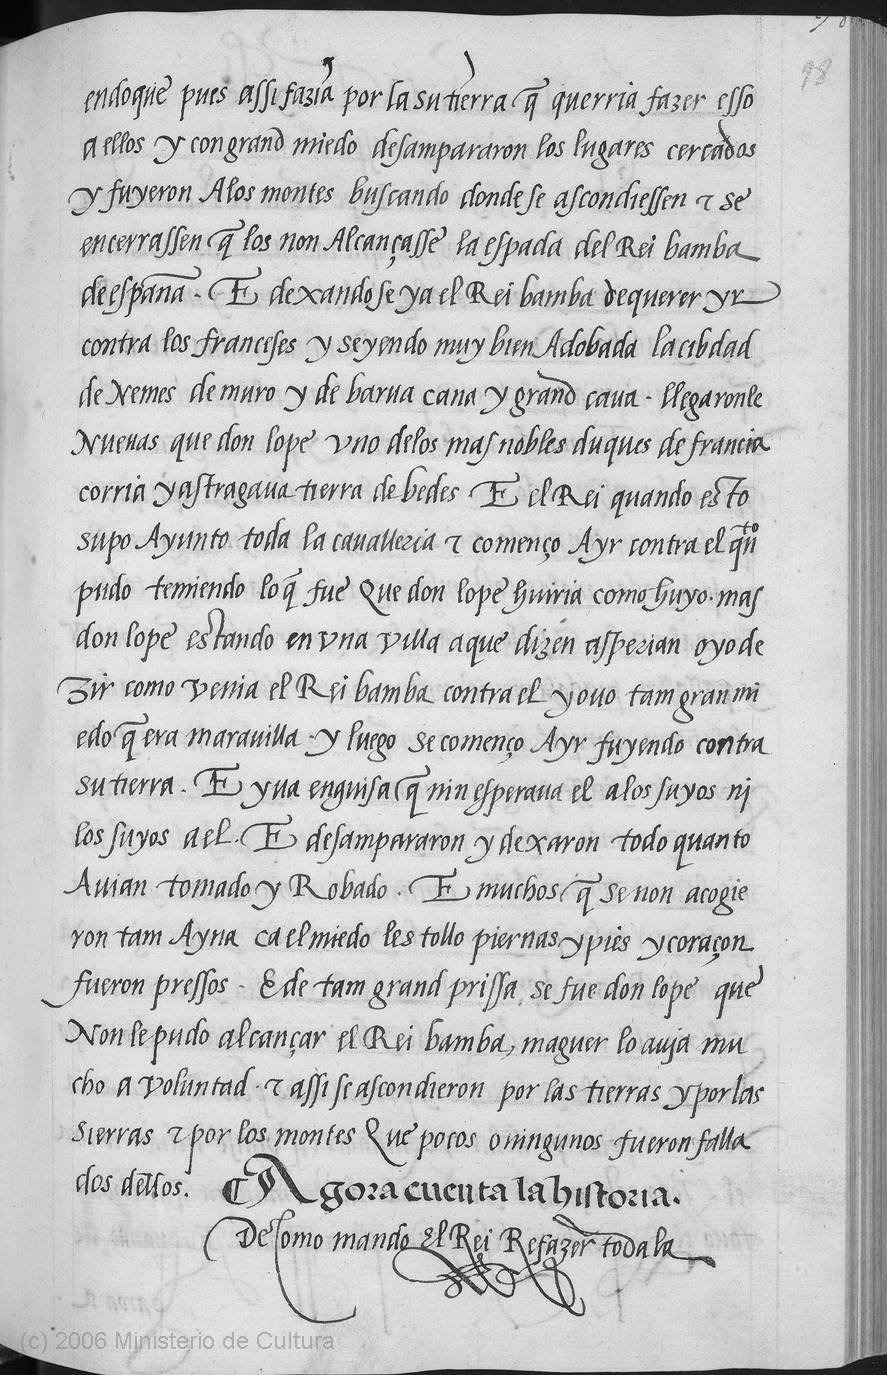 98
endoque pues assi fazia por la su tierra q̃ querria fazer esso
a ellos y con grand miedo desampararon los lugares cercados
y fuyeron A los montes buscando donde se ascondiessen τ se
encerrassen q̃ los non Alcançasse la espada del Rei bamba
de españa. E dexandose ya el Rei bamba de querer yr
contra los franceses y seyendo muy bien Adobada la cibdad
de Nemes de muro y de barua cana y grand çaua. llegaronle
Nueuas que don lope vno delos mas nobles duques de francia
corria y astragaua tierra de bedes E el Rei quando esto
supo Ayunto toda la caualleria τ començo Ayr contra el q̃nto
pudo temiendo lo q̃ fue Que don lope huiria como huyo. mas
don lope estando en vna villa a que dizen asperian oyo de
zir como venia el Rei bamba contra el y ouo tam gran mi
edo q̃ era marauilla. y luego se començo Ayr fuyendo contra
su tierra. E yua en guisa q̃ nin esperaua el a los suyos nj
los suyos a el. E desampararon y dexaron todo quanto
Auian tomado y Robado. E muchos q̃ se non acogie
ron tam Ayna ca el miedo les tollo piernas y pies y coraçon
fueron pressos. E de tam grand prissa se fue don lope que
Non le pudo alcançar el Rei bamba, maguer lo auja mu
cho a voluntad. τ assi se ascondieron por las tierras y por las
sierras τ por los montes Que pocos o ningunos fueron falla
dos dellos. ¶ Agora cuenta la historia.
De Como mando El Rei Refazer toda la
(c) 2006 Ministerio de Cultura